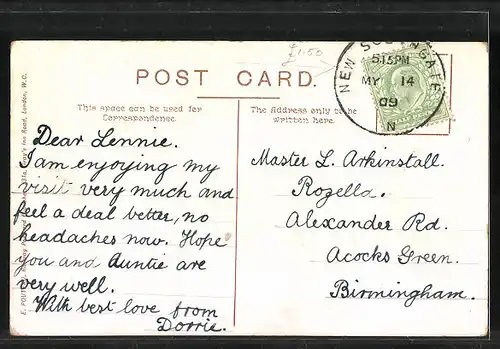 £1.50
POST CARD.
This space can be used for
Correspondence.
The Address only to be
written here.
NEW SOUTHGATE
5.15PM
MY 14
09
N
Dear Lennie.
I am enjoying my
visit very much and
feel a deal better, no
headaches now. Hope
you and Auntie are
very well.
With best love from
Dorrie.
Master L. Arkinstall.
Rozella.
Alexander Rd.
Acocks Green.
Birmingham.
Inn Road, London, W.C.